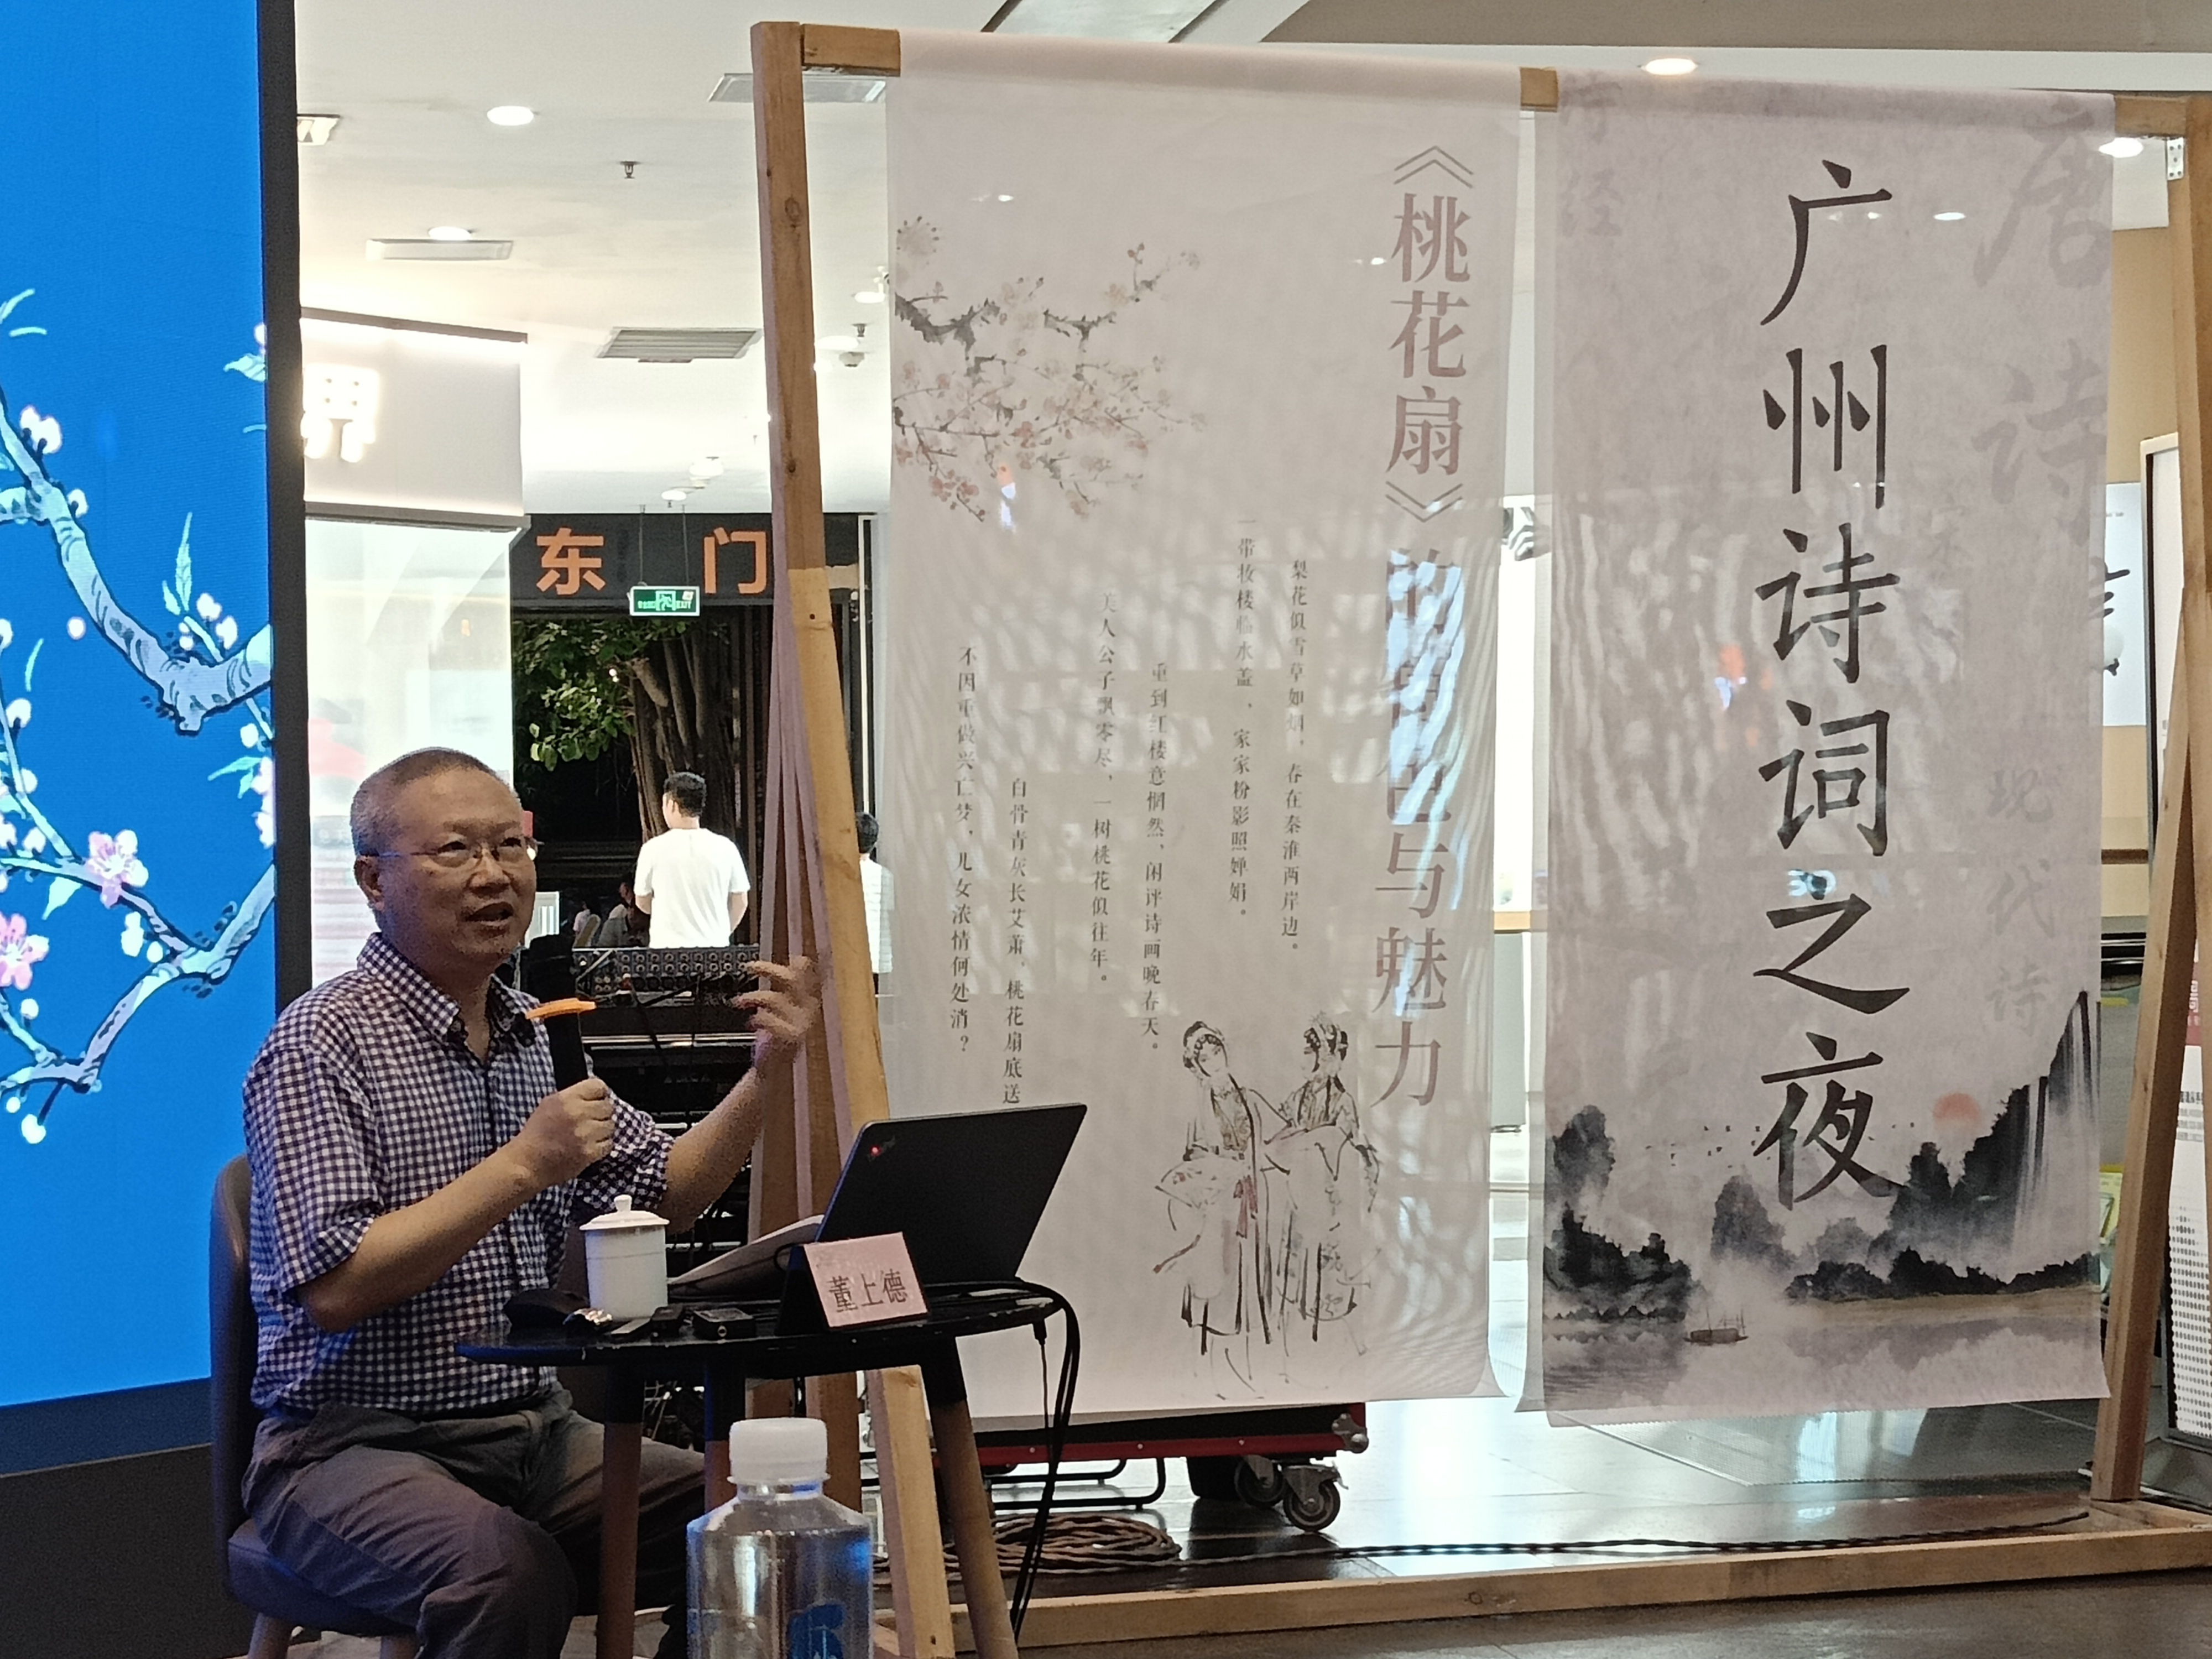 广州诗词之夜
唐诗
现代诗
《桃花扇》的角色与魅力
梨花似雪草如烟，春在秦淮两岸边。
一带妆楼临水盖，家家粉影照婵娟。
重到红楼意惘然，闲评诗画晚春天。
美人公子飘零尽，一树桃花似往年。
白骨青灰长艾萧，桃花扇底送
不因重做兴亡梦，儿女浓情何处消？
东 门
EXIT
董上德